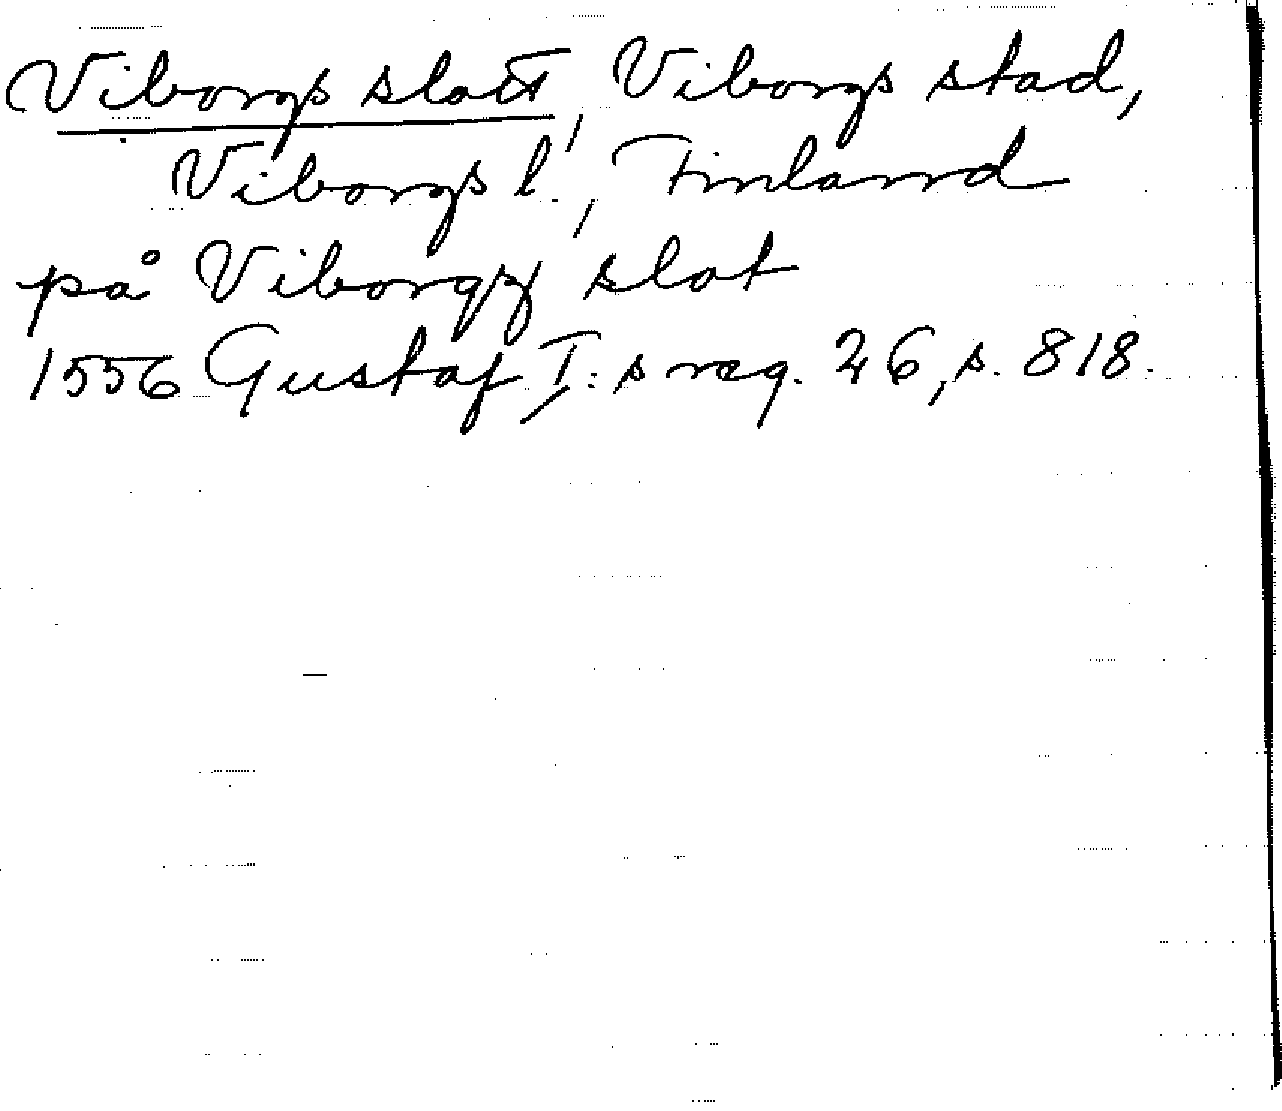 Viborgs slott, Viborgs stad,
Viborgs l., Finland
på Viborgz slot
1556 Gustaf I:s reg. 26, s. 818.